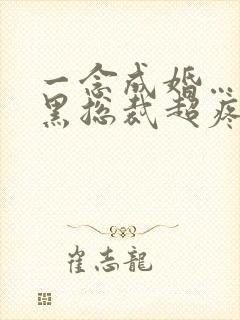 一念成婚…
黑总裁超疼
崔志龍